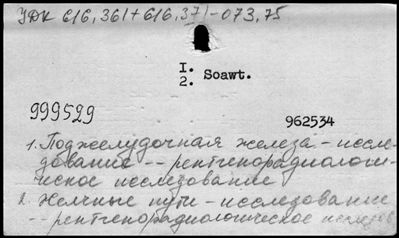 УДК 616,361+616,371-073,75
I.
2. Soawt.
999529
962534
1. Поджелудочная железа - иссле-
дование -- рентгенорадиологи-
ческое исследование
2. Желчные пути - исследование
-- рентгенорадиологическое исследов